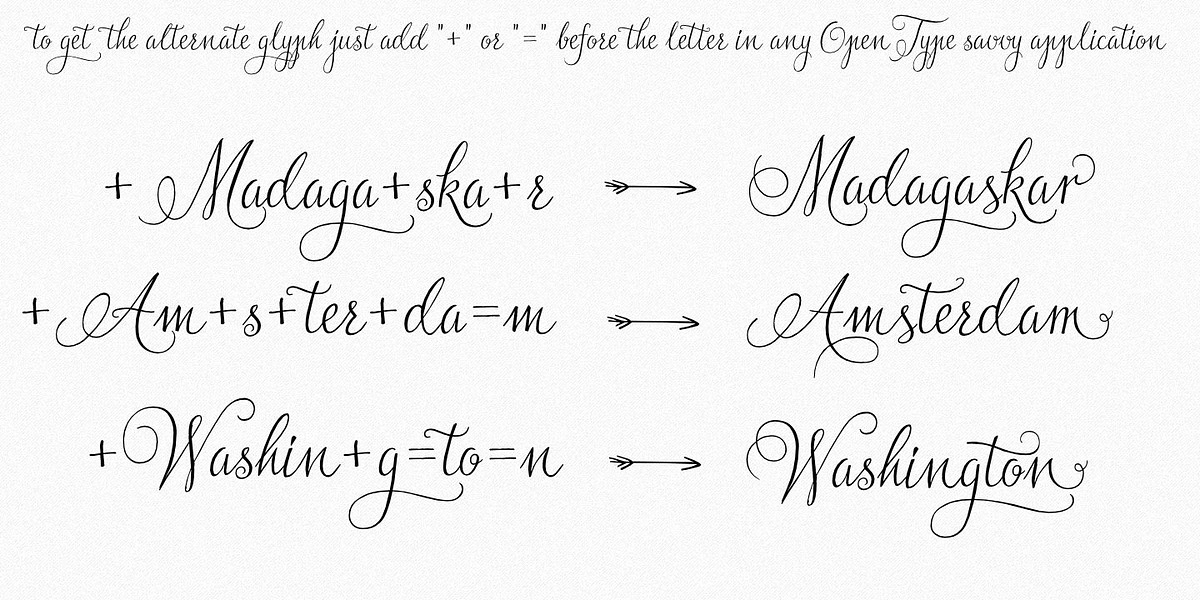 to get the alternate glyph just add "+" or "=" before the letter in any OpenType savvy application
+Madaga+ska+r → Madagaskar
+Am+s+ter+da=m → Amsterdam
+Washin+g=to=n → Washington